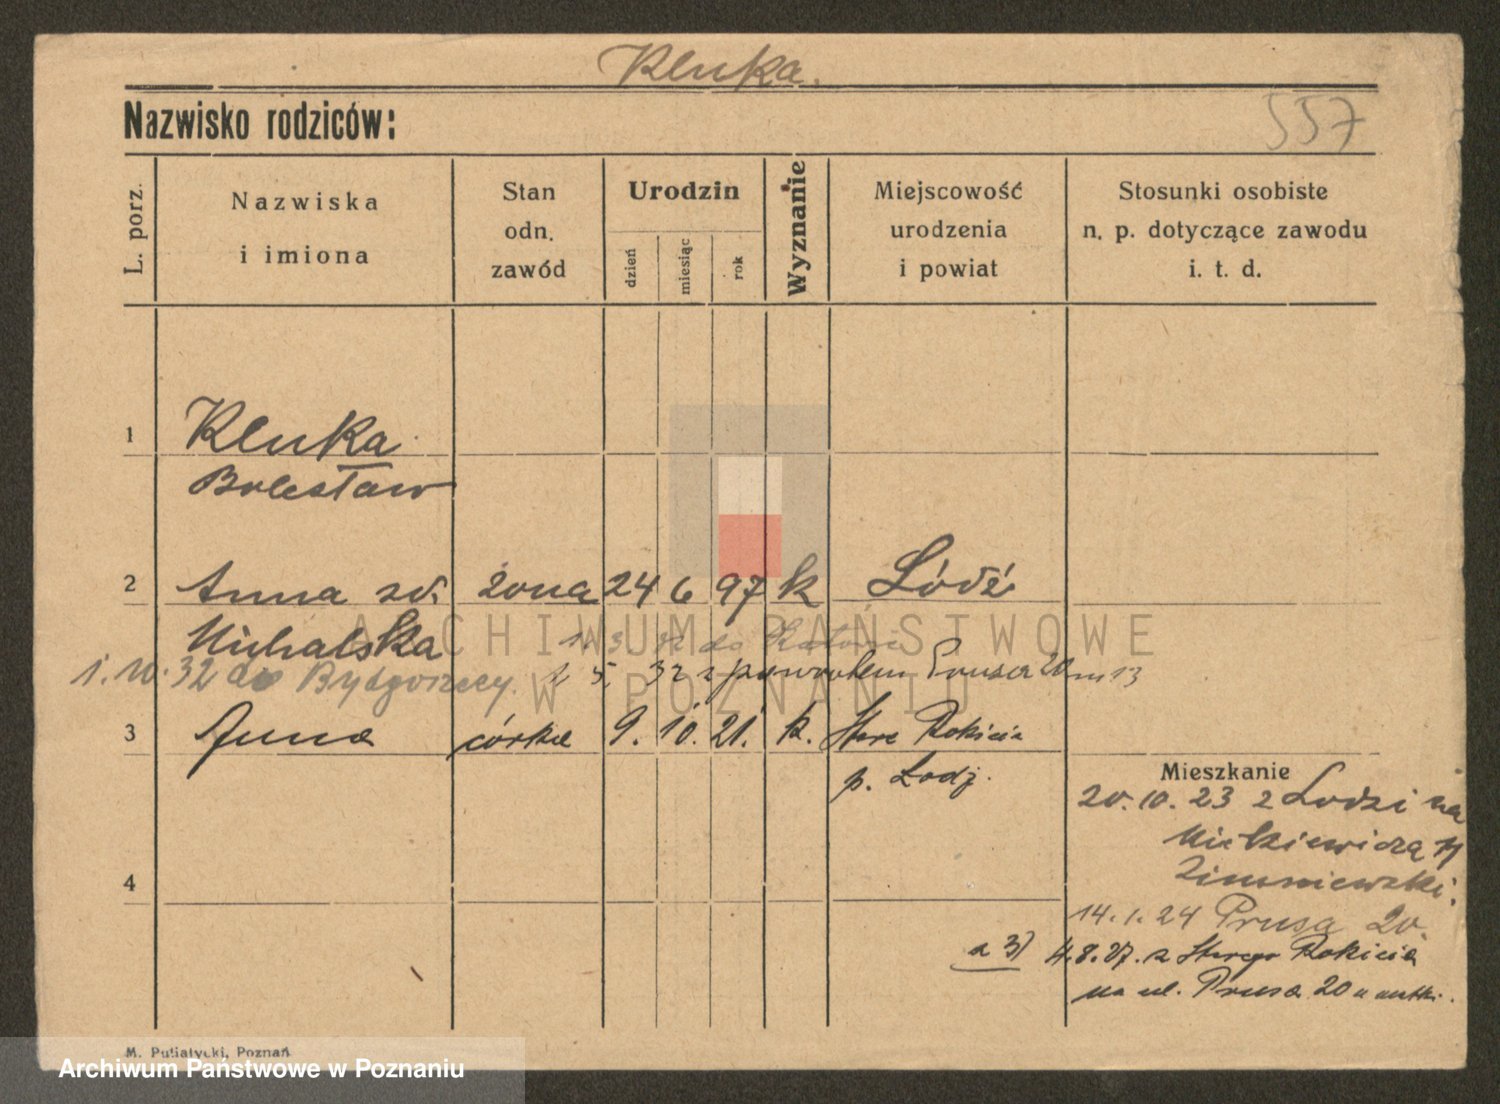 Kluka.
Nazwisko rodziców:
557
L. porz.
Nazwiska
i imiona
Stan
odn.
zawód
Urodzin
dzień
miesiąc
rok
Wyznanie
Miejscowość
urodzenia
i powiat
Stosunki osobiste
n. p. dotyczące zawodu
i. t. d.
1
Kluka
Bolesław
2 Anna zd. żona 24 6 97 k Łódź
Michalska
1. 3 32 do
1. 10. 32 do Bydgoszczy. 5. 32 z powrotem Prusa 20 m 13
3 Anna córka 9. 10. 21. k. Stare Rokicie
p. Łodz.
Mieszkanie
20. 10. 23 z Lodzi na
Mickiewicza
Zimniewski.
4
14. 1. 24 Prusa 20.
a 3) 4. 8. 27. z Starego Rokicia
na ul. Prusa 20 u matki.
M. Putiatycki, Poznań
ARCHIWUM PAŃSTWOWE
W POZNANIU
Archiwum Państwowe w Poznaniu